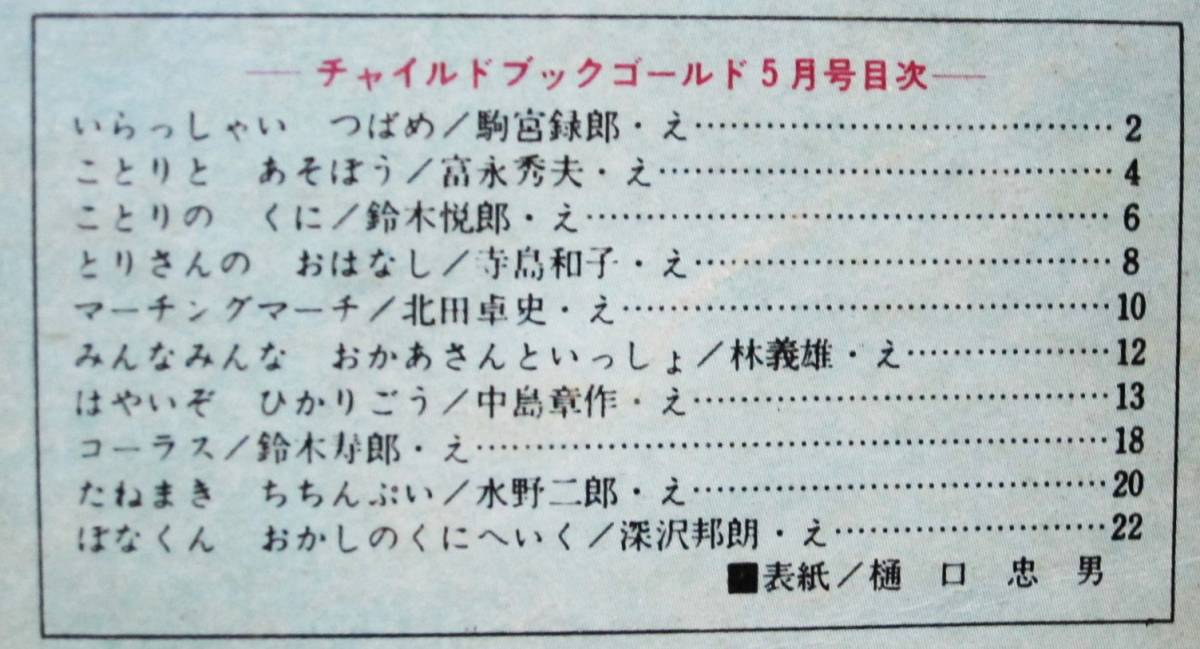 チャイルドブックゴールド5月号目次
いらっしゃい つばめ/駒宮録郎・え……………………………2
ことりと あそぼう/富永秀夫・え……………………………4
ことりの くに/鈴木悦郎・え……………………………6
とりさんの おはなし/寺島和子・え……………………………8
マーチングマーチ/北田卓史・え……………………………10
みんなみんな おかあさんといっしょ/林義雄・え……………12
はやいぞ ひかりごう/中島章作・え……………………………13
コーラス/鈴木寿郎・え……………………………18
たねまき ちちんぷい/水野二郎・え……………………………20
ぼなくん おかしのくにへいく/深沢邦朗・え…………………22
■表紙/樋口忠男